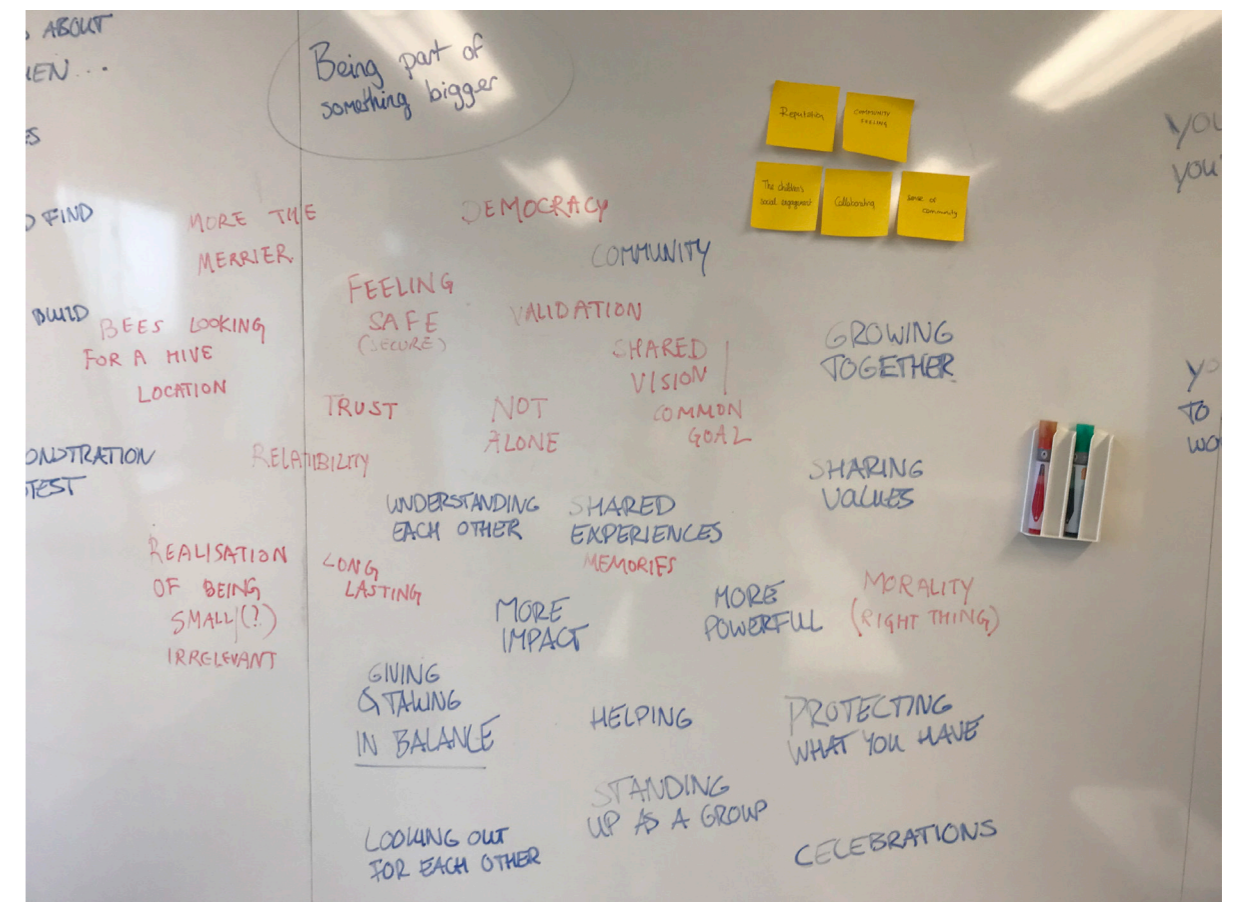 ABOUT
Being part of
something bigger
Reputation
community
feeling
The children's
social engagement
Collaborating
sense of
community
FIND
MORE THE
MERRIER
DEMOCRACY
COMMUNITY
FEELING
SAFE
(SECURE)
VALIDATION
BUILD
BEES LOOKING
FOR A HIVE
LOCATION
SHARED
VISION
COMMON
GOAL
GROWING
TOGETHER
TRUST
NOT
ALONE
RELATIBILITY
SHARING
VALUES
TEST
UNDERSTANDING
EACH OTHER
SHARED
EXPERIENCES
MEMORIES
REALISATION
OF BEING
SMALL/(?)
IRRELEVANT
LONG
LASTING
MORE
IMPACT
MORE
POWERFUL
MORALITY
(RIGHT THING)
GIVING
& TAKING
IN BALANCE
HELPING
PROTECTING
WHAT YOU HAVE
STANDING
UP AS A GROUP
LOOKING OUT
FOR EACH OTHER
CELEBRATIONS
YOU
TO